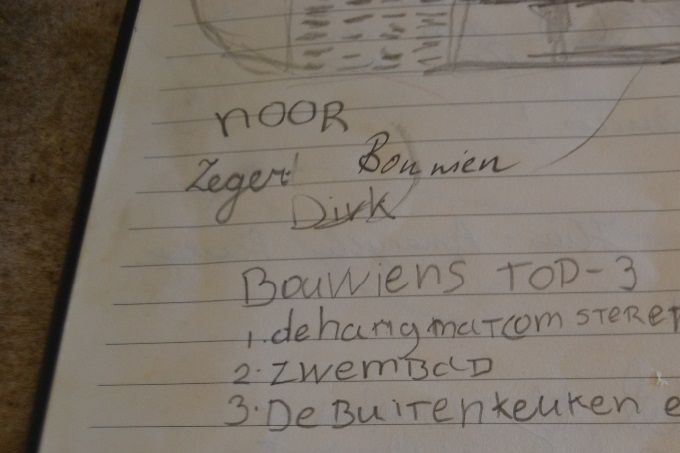 NOOR
Zeger! Bouwien
Dirk
BOUWiens TOD-3
1. de hangmat om STERE
2. ZWEMBAD
3. De BUITENKEUKEN e